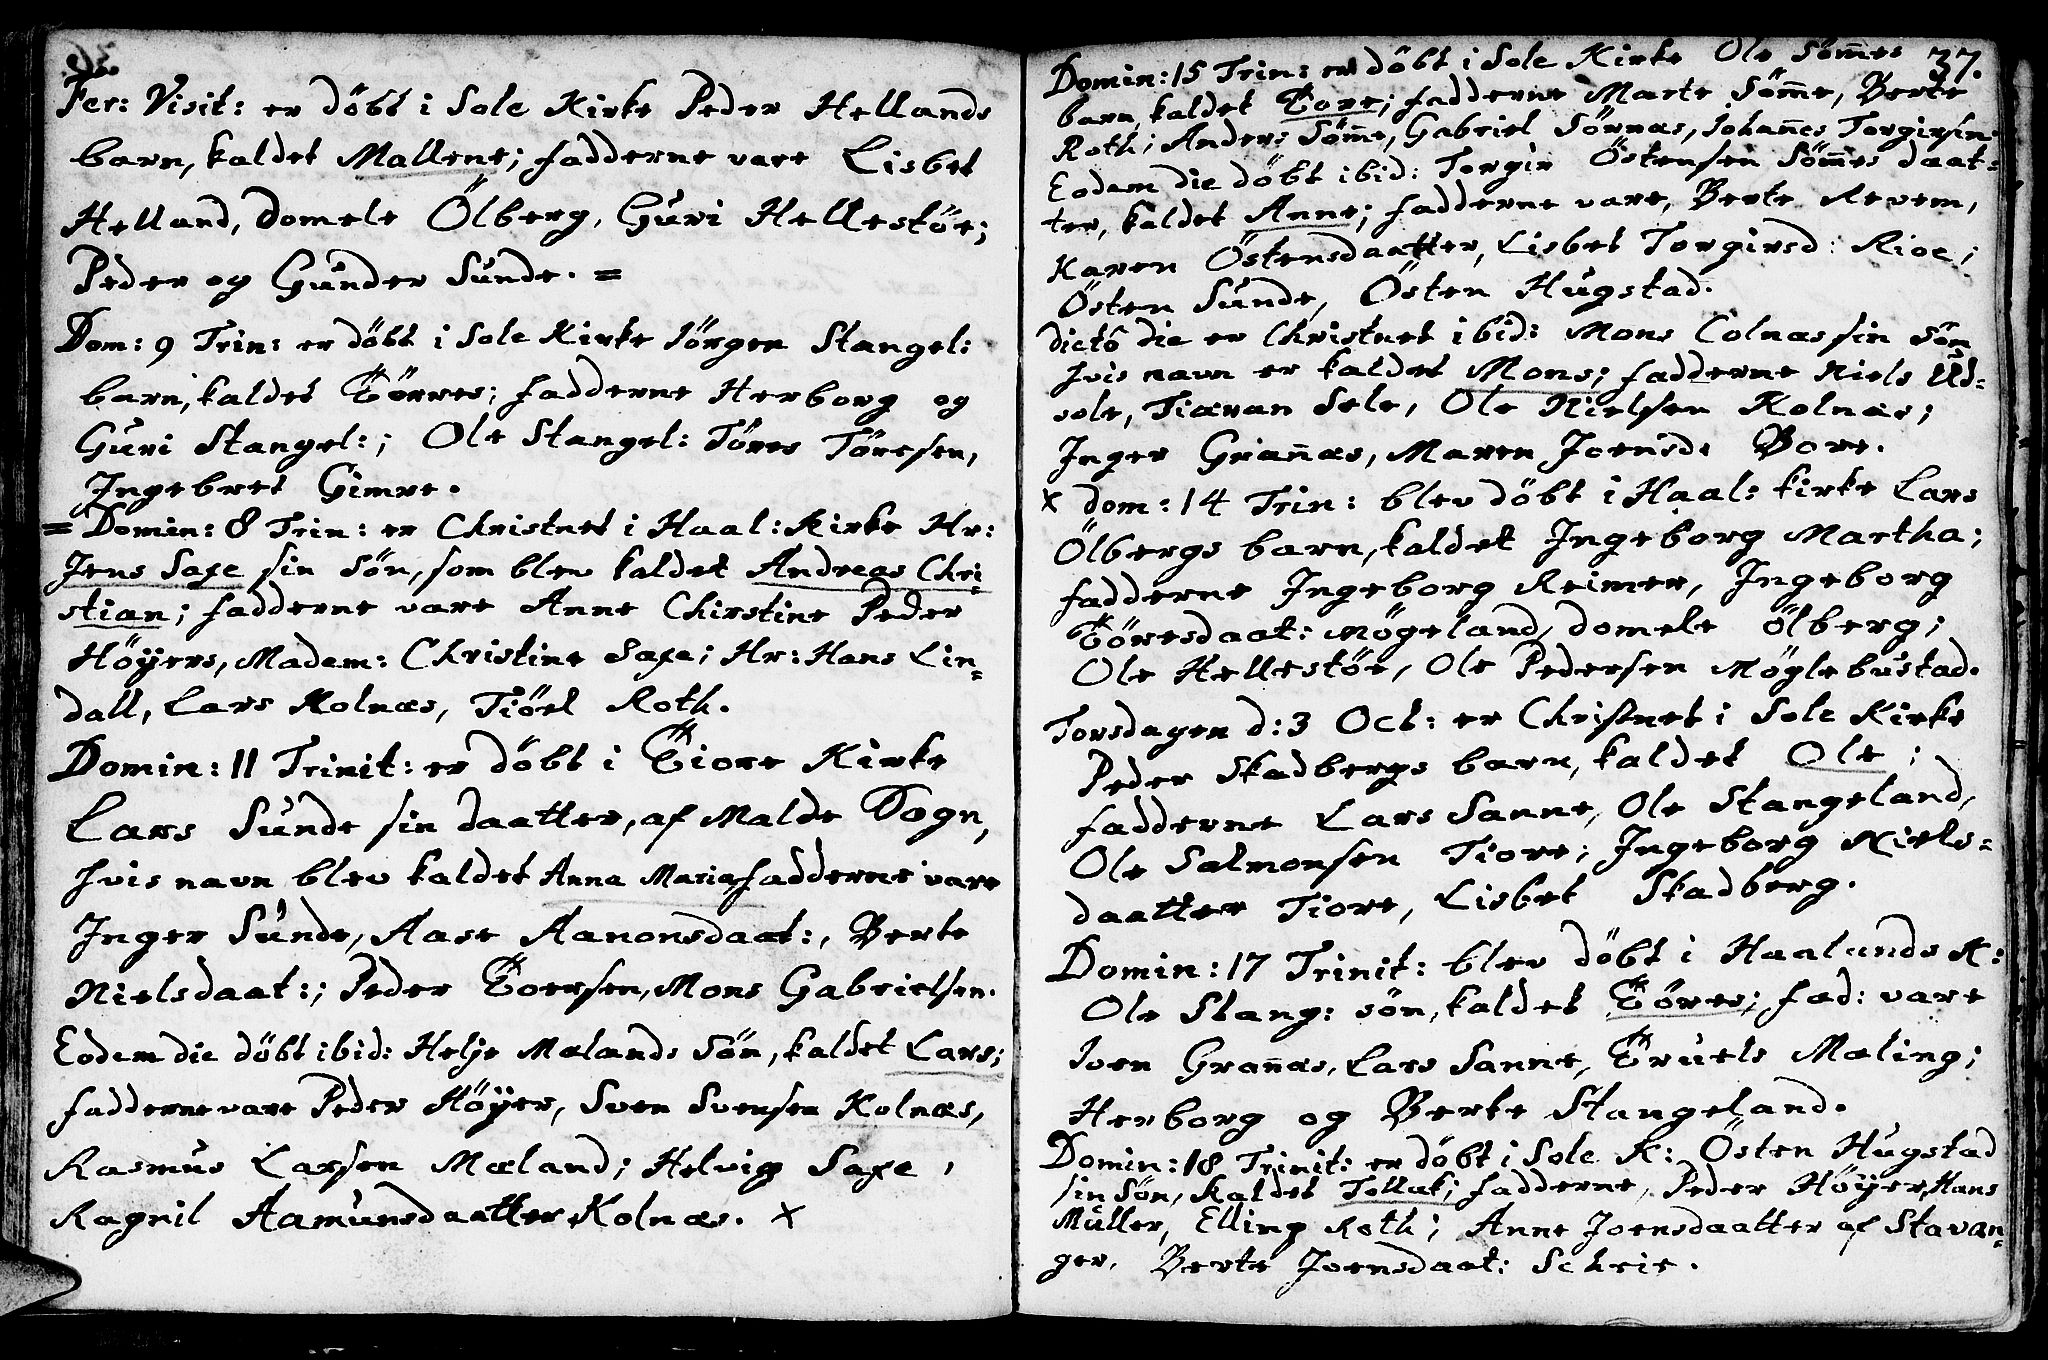 36.
Fer: Visit: er döbt i Sole Kirke Peder Hellands
barn, kaldet Mallene; fadderne vare Lisbet
Helland, Domele Ölberg, Guri Hellestöe;
Peder og Gunder Sunde. =
Dom: 9 Trin: er döbt i Sole Kirke Jörgen Stangel:
barn, kaldet Törres; fadderne Herborg og
Guri Stangel:; Ole Stangel: Töres Töresen,
Ingebret Gimre.
= Domin: 8 Trin: er Christnet i Haal: Kirke Hr:
Jens Saxe sin Sön, som blev kaldet Andreas Chri
stian; fadderne vare Anne Chirstine Peder
Höÿers, Madam: Christine Saxe; Hr: Hans Lin-
dall, Lars Kolnæs, Tiöel Roth.
Domin: 11 Trinit: er döbt i Tiore Kirke
Lars Sunde sin daatter, af Malde Sogn,
hvis navn blev kaldet Anna Maria fadderne vare
Inger Sunde, Aase Aanonsdaat:, Berte
Nielsdaat:; Peder Toersen, Mons Gabrielsen.
Eodem die döbt ibid: Helje Mælands Sön, kaldet Lars;
fadderne vare Peder Höÿer, Sven Svensen Kolnæs,
Rasmus Larsen Mæland; Helvig Saxe,
Ragnil Aamunsdaatter Kolnæs. x
37.
Domin: 15 Trin: er döbt i Sole Kirke Ole Söm̄es
barn, kaldet Tore; fadderne Marte Söm̄e, Berte
Roth; Anders Söm̄e, Gabriel Sörnæs, Johan̄es Torgirsen
Eodem die döbt ibid: Torgir Östensen Söm̄es daat-
ter, kaldet Anne; fadderne vare, Berte Revem,
Karen Östensdaatter, Lisbet Torgirsd: Rioe;
Östen Sunde, Östen Hugstad.
dicto die er Christnet ibid: Mons Colnæs sin Sön
hvis navn er kaldet Mons; fadderne Niels Ud-
sole, Tiæran Sele, Ole Nielsen Kolnæs;
Inger Gran̄æs, Maren Joensd: Bore.
x dom: 14 Trin: blev döbt i Haal: kirke Lars
Ölbergs barn, kaldet Ingeborg Martha;
fadderne Ingeborg Reimer, Ingeborg
Töresdaat: Mögeland, Domele Ölberg;
Ole Hellestöe, Ole Pedersen Möglebustad.
Torsdagen d: 3 Oct: er Christnet i Sole Kirke
Peder Skadbergs barn, kaldet Ole;
fadderne Lars Sanne, Ole Stangeland,
Ole Salmonsen Tiore; Ingeborg Niels-
daatter Tiore, Lisbet Skadberg.
Domin: 17 Trinit: blev döbt i Haalands K:
Ole Stang: sön, kaldet Töres; fad: vare
Joen Gran̄æs, Lars Sanne, Truels Mæling;
Herborg og Berte Stangeland.
Domin: 18 Trinit: er döbt i Sole K: Östen Hugstad
sin Sön, kaldet Tollak; fadderne, Peder Höÿer, Hans
Müller, Elling Roth; Anne Joensdaatter af Stavan-
ger, Berte Joensdaat: Scheie.